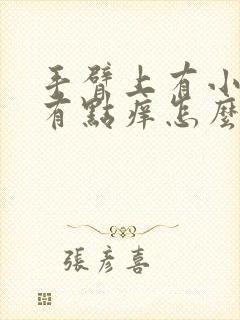 手臂上有小
有點痒怎麼
張彥喜